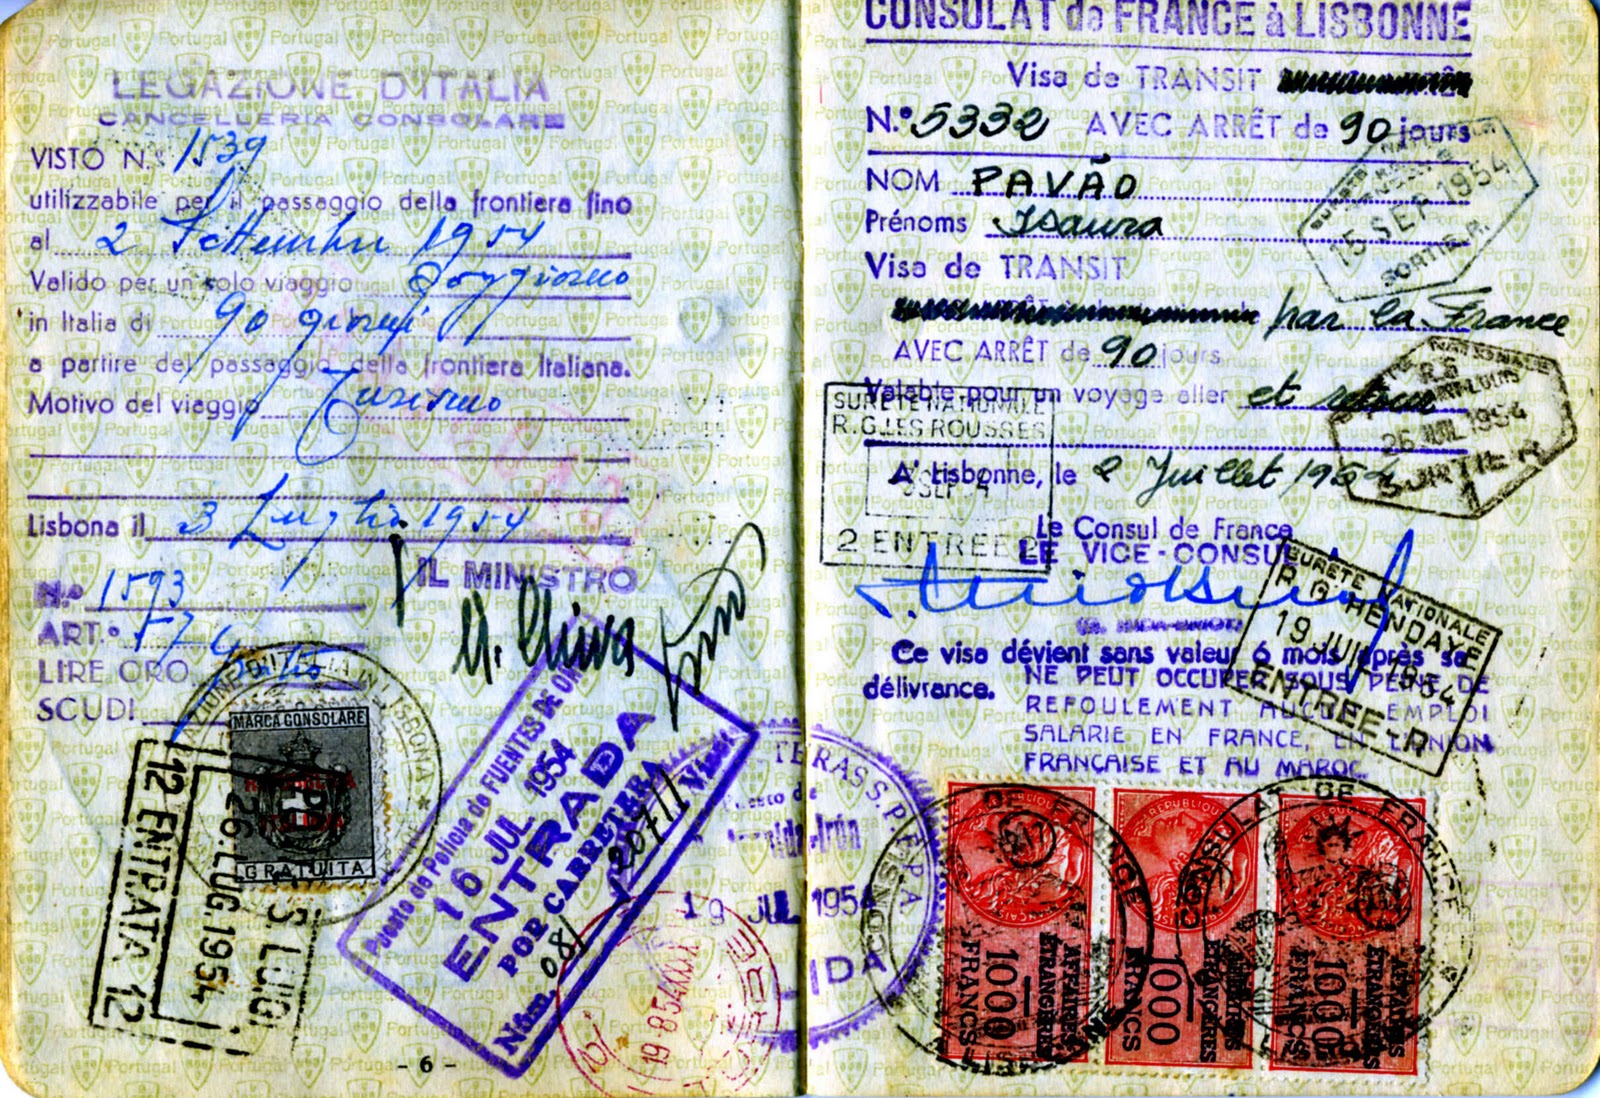 LEGAZIONE D'ITALIA
CANCELLERIA CONSOLARE
VISTO N.° 1539
utilizzabile per il passaggio della frontiera fino
al 2 Settembre 1954
Valido per un solo viaggio Soggiorno
in Italia di 90 giorni
a partire del passaggio della frontiera Italiana.
Motivo del viaggio Turismo
Lisbona il 3 Luglio 1954
IL MINISTRO
N.° 1593
ART.°
LIRE ORO
SCUDI
MARCA CONSOLARE
GRATUITA
12 ENTRATA 12
26.LUG.1954
S. LUIGI
Puesto de Policia de FUENTES DE
16 JUL 1954
ENTRADA
POR CARRETERA
Núm. 081
- 6 -
19 JUL 1954
CONSULAT de FRANCE à LISBONNE
Visa de TRANSIT
N.° 5332 AVEC ARRÊT de 90 jours
NOM PAVÃO
Prénoms Isaura
Visa de TRANSIT
par la France
AVEC ARRÊT de 90 jours
Valable pour un voyage aller et retour
A Lisbonne, le 2 Juillet 1954
Le Consul de France
LE VICE-CONSUL
Ce visa dévient sans valeur 6 mois après sa
délivrance.
NE PEUT OCCUPER SOUS PEINE DE
REFOULEMENT AUCUN EMPLOI
SALARIE EN FRANCE, EN UNION
FRANÇAISE ET AU MAROC
15 SEP 1954
SORTIE R.
26 JUIL 1954
SORTIE R
SURETÉ NATIONALE
R.G. LES ROUSSES
2 ENTREE 2
SURETÉ NATIONALE
R.G. HENDAYE
19 JUIL 1954
ENTREE R
AFFAIRES
ETRANGÈRES
1000
FRANCS
AFFAIRES
ETRANGÈRES
1000
FRANCS
AFFAIRES
ETRANGÈRES
1000
FRANCS
CONSULAT DE FRANCE